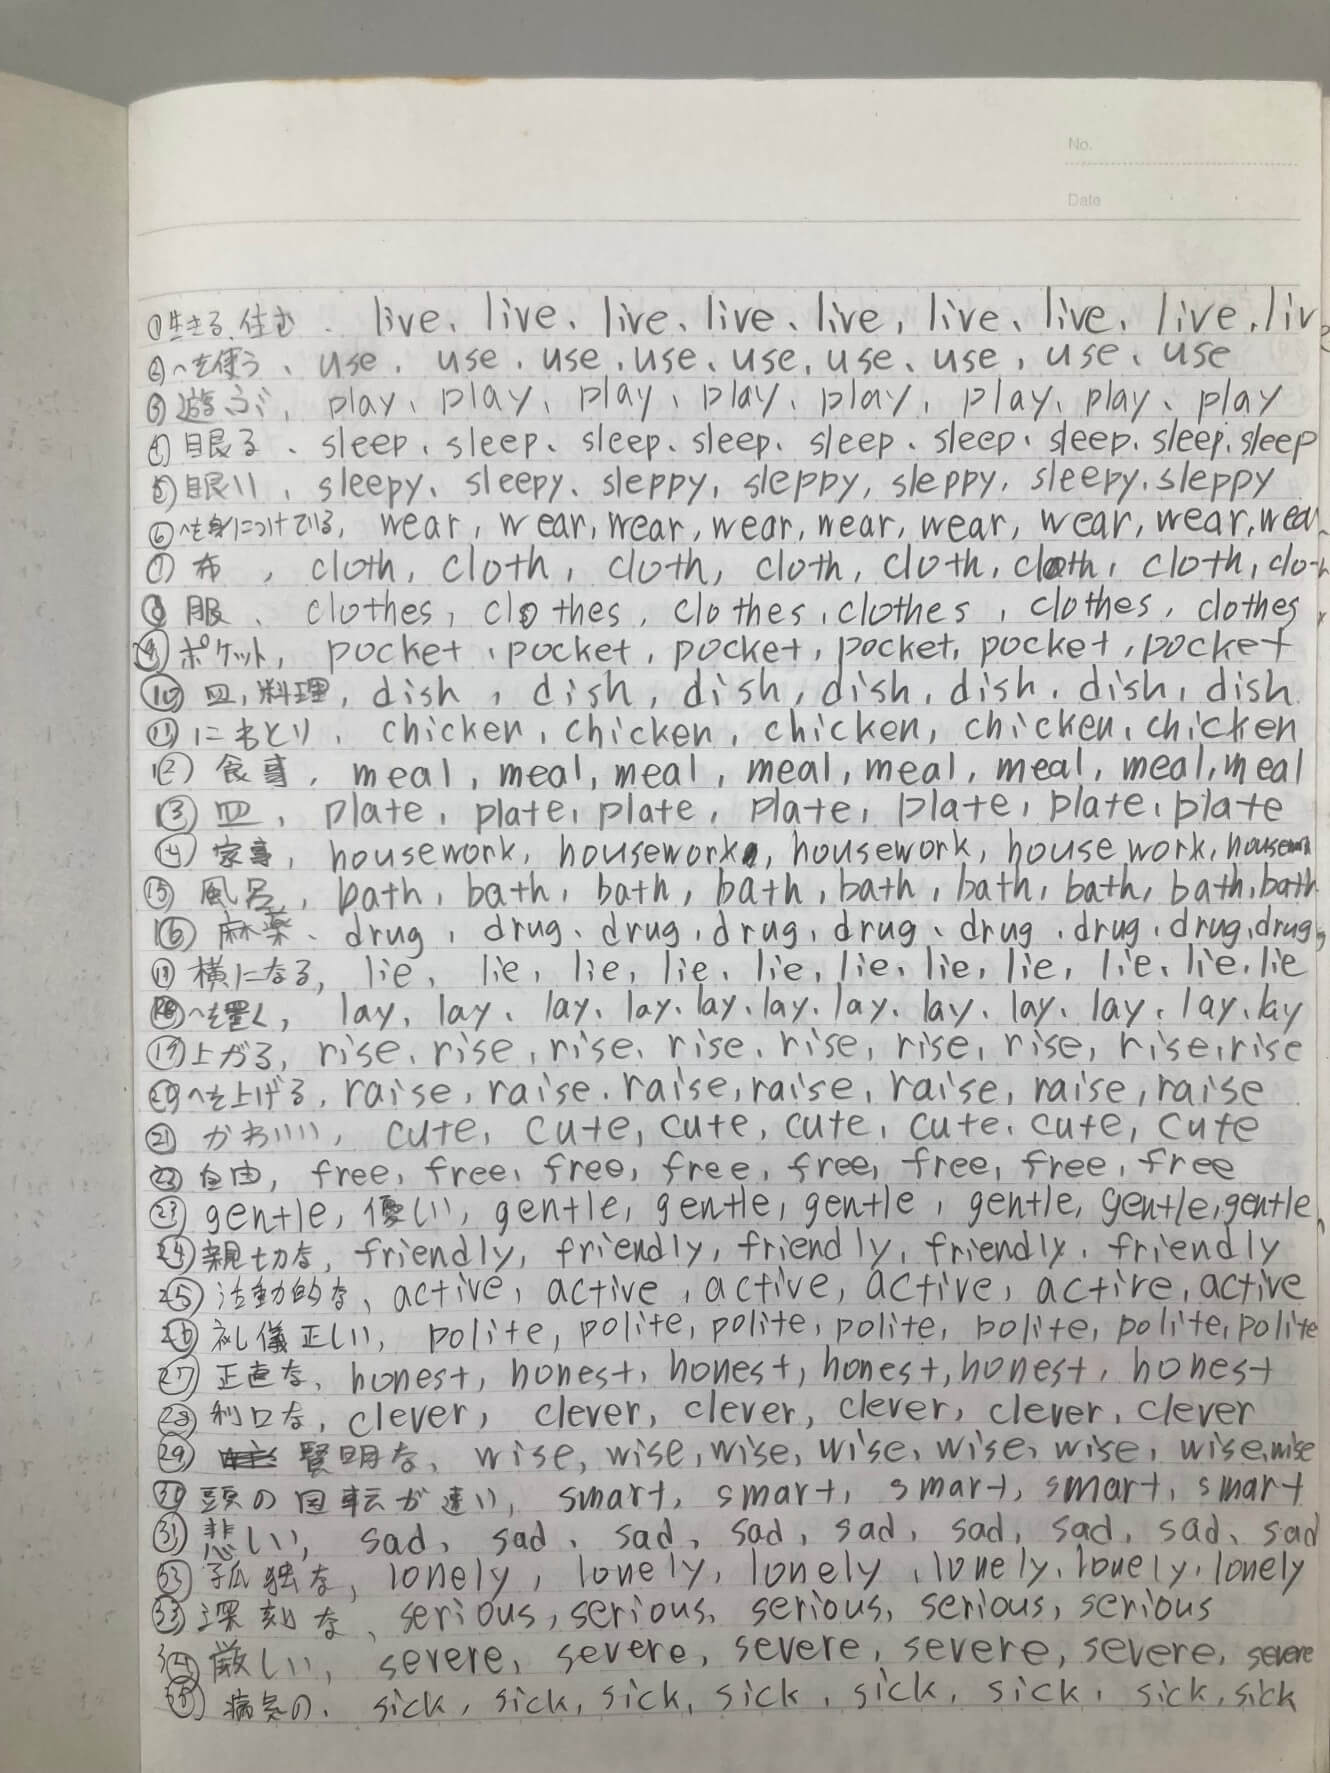 No.
Date
①生きる、住む、live、live、live、live、live, live、live、live、liv
②〜を使う、use、use、use、use、use, use、use, use、use
③遊ぶ、play、play、play、play、play, play、play、play
④眠る、sleep、sleep、sleep、sleep、sleep、sleep、sleep、sleep、sleep
⑤眠い、sleepy、sleepy、sleppy, sleppy, sleppy, sleepy、sleppy
⑥〜を身につけている, wear, wear, wear, wear, wear, wear, wear, wear, wear
⑦布, cloth, cloth, cloth, cloth, cloth, cloth, cloth, cloth
⑧服、clothes, clothes, clothes, clothes, clothes, clothes,
⑨ポケット, pocket, pocket, pocket, pocket, pocket, pocket
⑩皿,料理, dish, dish, dish, dish, dish, dish, dish
⑪にわとり, chicken, chicken, chicken, chicken, chicken
⑫食事, meal, meal, meal, meal, meal, meal, meal, meal
⑬皿, plate, plate, plate, plate, plate, plate, plate
⑭家事, housework, housework, housework, housework, housework
⑮風呂, bath, bath, bath, bath, bath, bath, bath, bath, bath
⑯麻薬、drug, drug、drug, drug, drug、drug, drug, drug, drug,
横になる, lie、lie, lie, lie, lie, lie, lie, lie, lie、lie, lie
〜を置く, lay, lay、lay、lay、lay、lay、lay、lay、lay、lay、lay、lay
⑲上がる, rise、rise, rise、rise、rise, rise, rise, rise, rise
〜を上げる, raise, raise, raise, raise, raise, raise, raise
㉑かわいい, cute, cute, cute, cute, cute, cute, cute
㉒自由, free, free, free, free, free, free, free, free
㉓gentle, 優しい, gentle, gentle, gentle, gentle, gentle, gentle,
㉔親切な, friendly, friendly, friendly, friendly, friendly
㉕活動的な、active, active, active, active, active, active
㉖礼儀正しい, polite, polite, polite, polite, polite, polite, polite
㉗正直な, honest, honest, honest, honest, honest, honest
㉘利口な, clever, clever, clever, clever, clever, clever
㉙賢明な、wise, wise, wise, wise, wise, wise, wise, wise
頭の回転が速い, smart, smart, smart, smart, smart
㉛悲しい, sad、sad、sad、sad、sad、sad、sad、sad、sad
孤独な, lonely, lonely, lonely, lonely, lonely, lonely
㉝深刻な、serious, serious, serious, serious, serious
㉞厳しい, severe, severe, severe, severe, severe, severe
㉟病気の、sick, sick, sick, sick, sick, sick, sick, sick